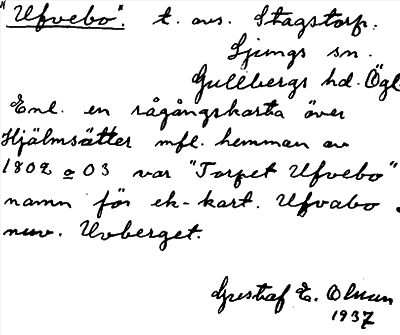 "Ufvebo". t. avs. Stagstorp.
Ljungs sn.
Gullbergs hd. Ögl.
Enl. en rågångskarta över
Hjälmsätter mfl. hemman av
1802 o 03 var "Torpet Ufvebo"
namn för ek-kart. Ufvabo.
nuv. Uvberget.
Gustaf E. Olsson
1937